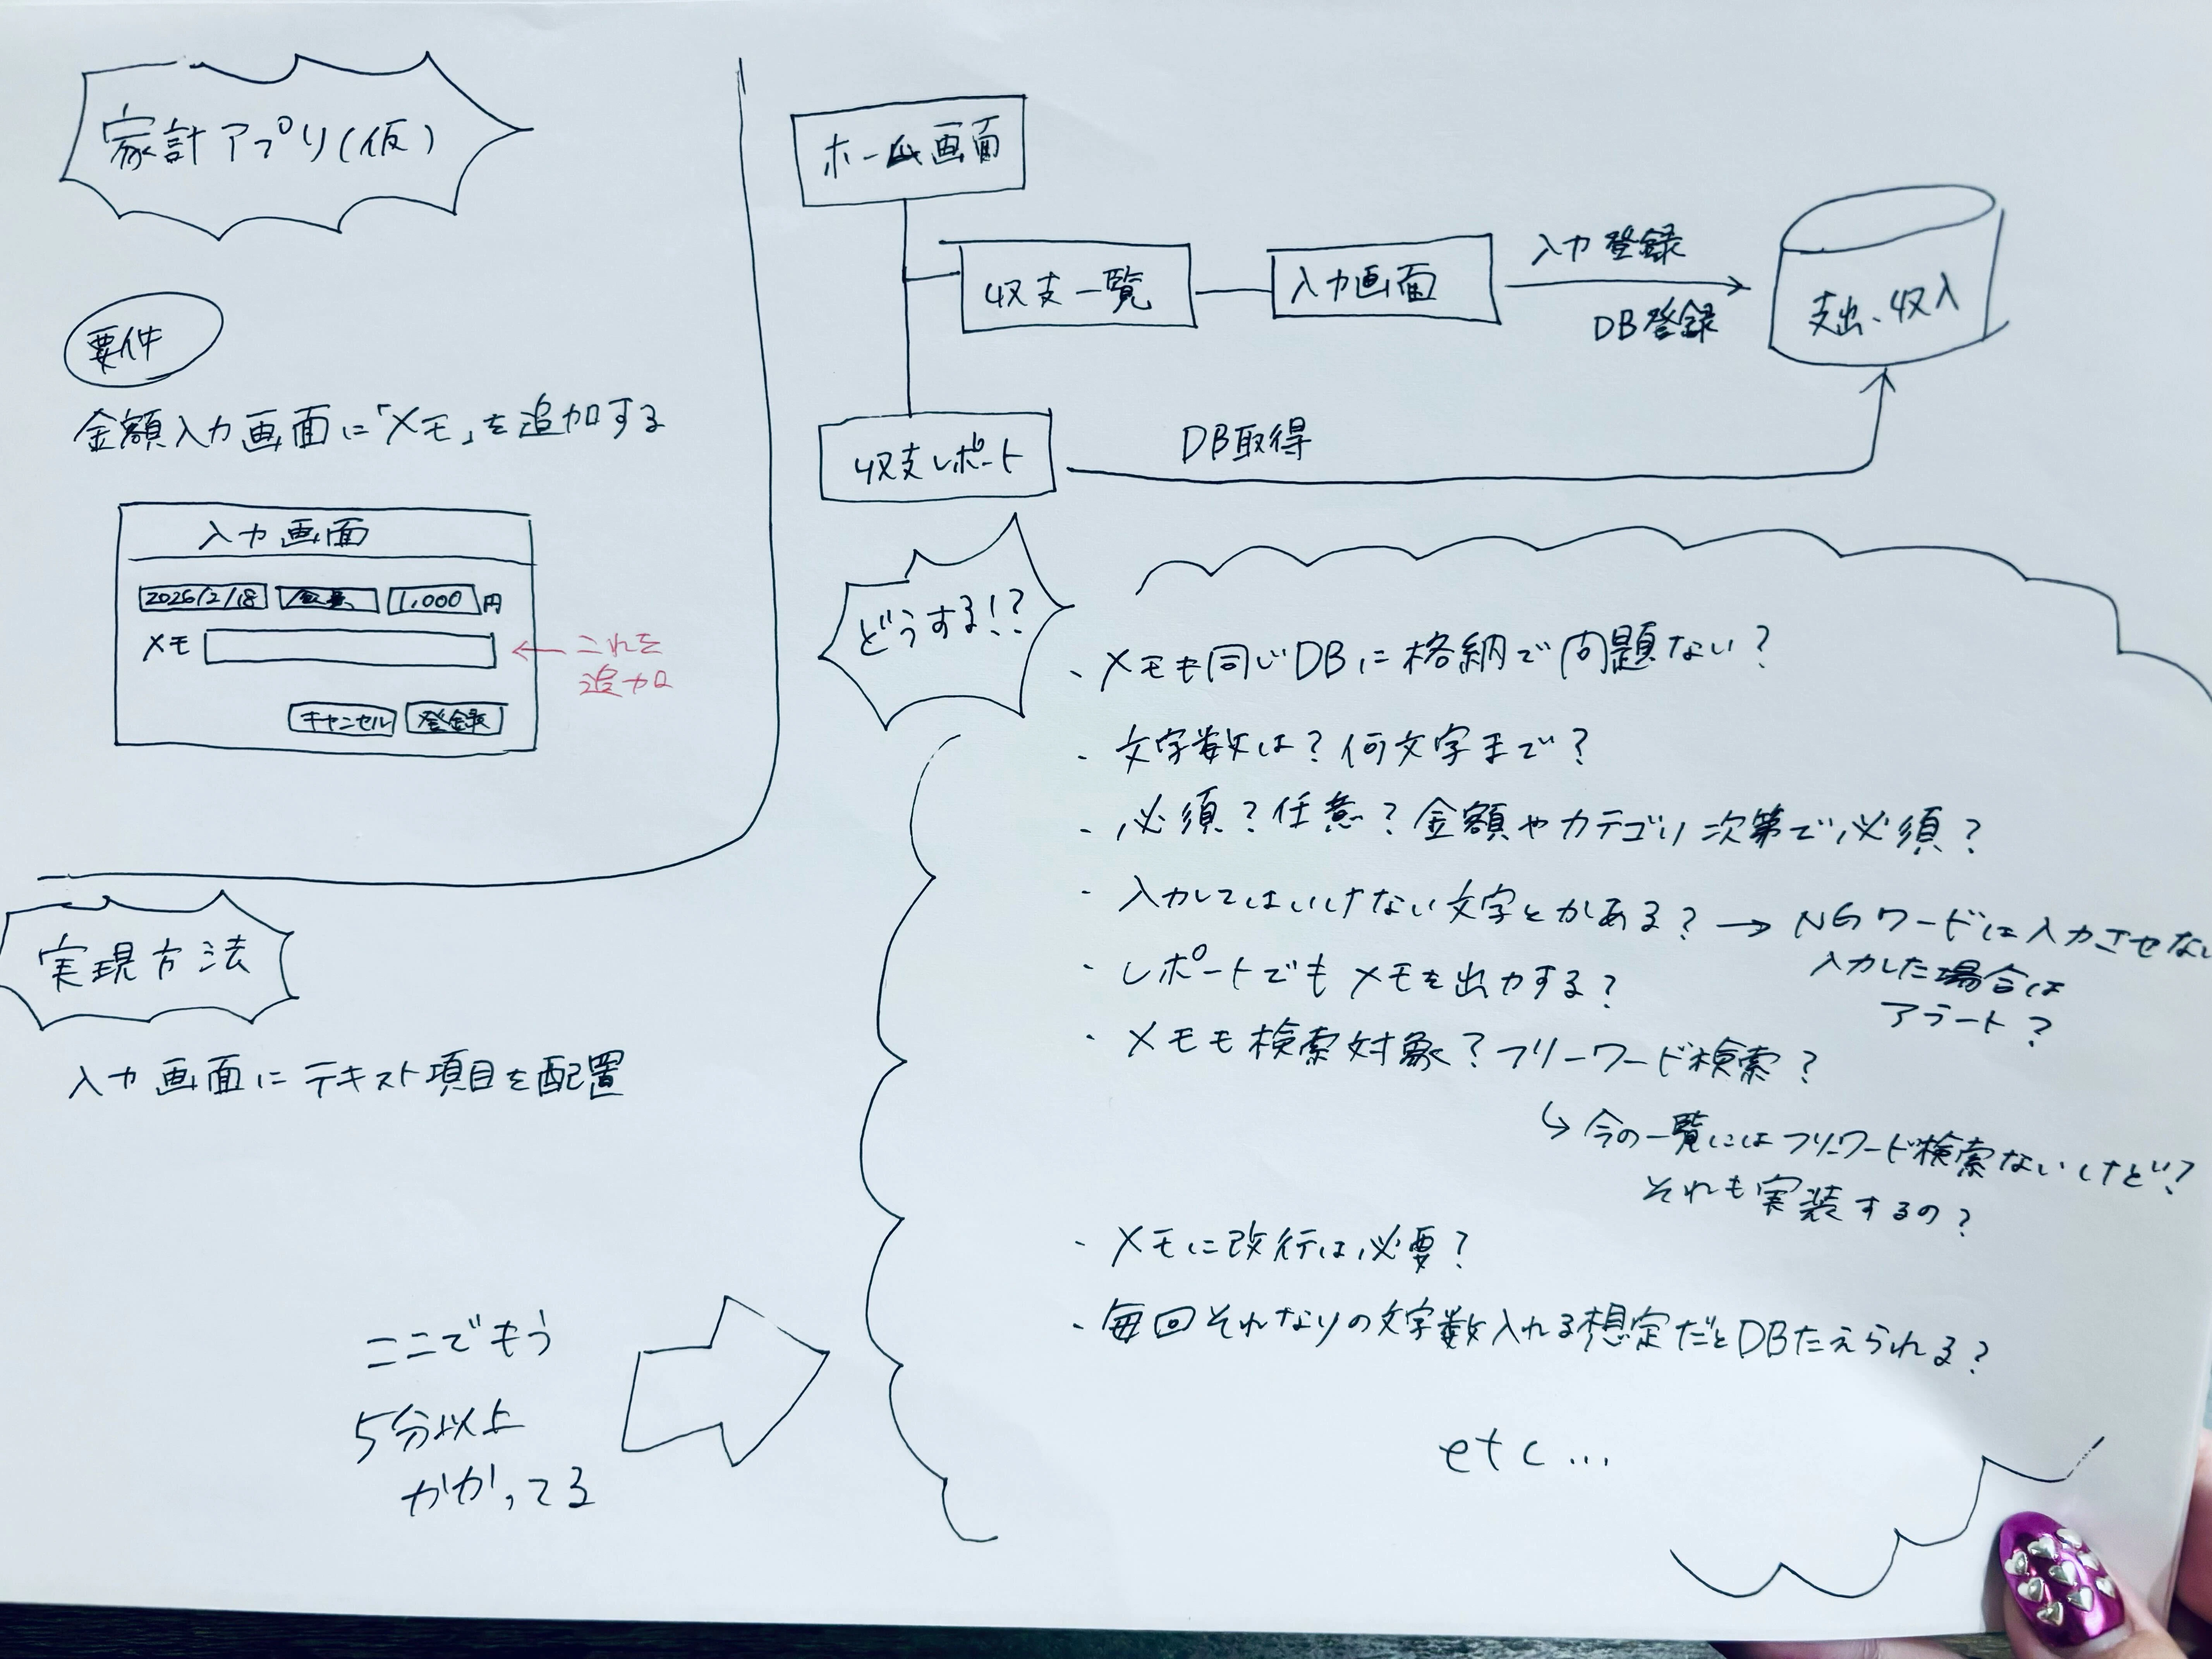 家計アプリ(仮)
要件
金額入力画面に「メモ」を追加する
入力画面
2026/2/18
1,000 円
メモ
← これを
追加
キャンセル 登録
ホーム画面
収支一覧
入力画面
入力登録
DB登録
支出、収入
収支レポート
DB取得
どうする!?
・メモも同じDBに格納で問題ない?
・文字数は?何文字まで?
・必須?任意?金額やカテゴリ次第で必須?
・入力してはいけない文字とかある? → NGワードは入力させない
入力した場合は
アラート?
・レポートでもメモを出力する?
・メモも検索対象?フリーワード検索?
↳ 今の一覧にはフリーワード検索ないけど!?
それも実装するの?
・メモに改行は必要?
・毎回それなりの文字数入れる想定だとDBたえられる?
etc...
実現方法
入力画面にテキスト項目を配置
ここでもう
5分以上
かかってる